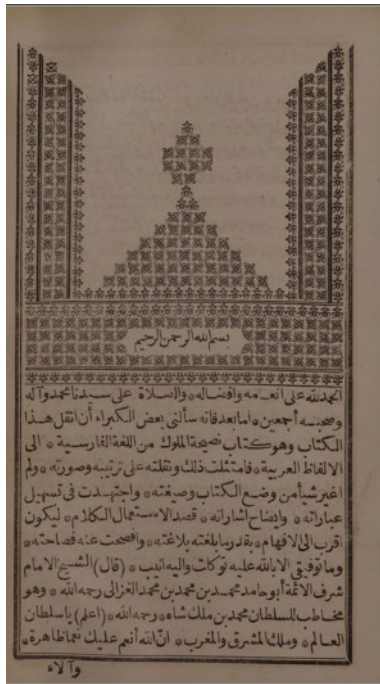 بسم الله الرحمن الرحيم
الحمد لله على انعامه وافضاله * والصلاة على سيدنا محمد وآله
وصحبه أجمعين * اما بعد فانه سألنى بعض الكبراء أن انقل هذا
الكتاب وهو كتاب نصيحة الملوك من اللغة الفارسية * الى
الالفاظ العربية * فامتثلت ذلك ونقلته على ترتيبه وصورته * ولم
اغير شيأ من وضع الكتاب وصيغته * واجتهدت فى تسهيل
عباراته * وايضاح اشاراته * قصد الاستعمال الكلام * ليكون
اقرب الى الافهام * بقدر ما بلغته بلاغته * وافصحت عنه فصاحته *
وما توفيقى الا بالله عليه توكلت واليه انيب * (قال) الشيخ الامام
شرف الائمة أبو حامد محمد بن محمد بن محمد الغزالى رحمه الله * وهو
مخاطب للسلطان محمد بن ملك شاه * رحمه الله * (اعلم) يا سلطان
العالم * وملك المشرق والمغرب * ان الله أنعم عليك نعما ظاهرة *
وآلاء